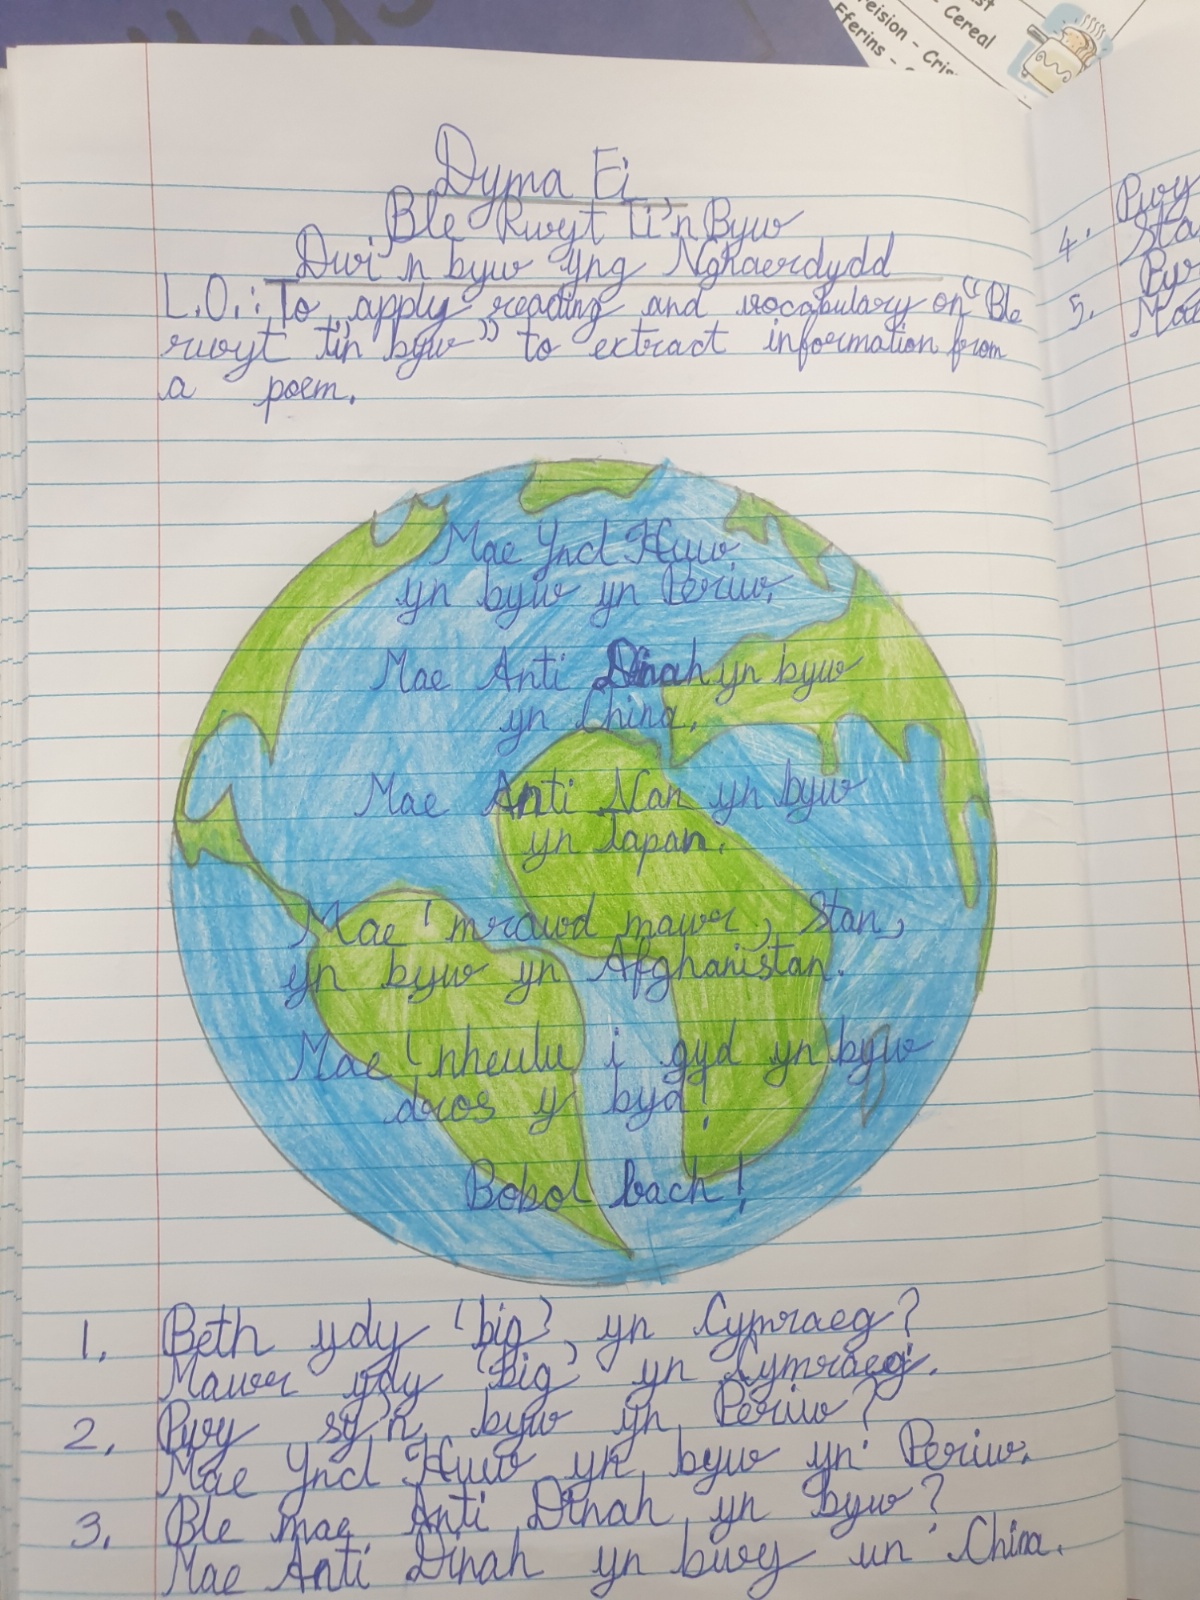 st
- Cereal
reision - Cris
fferins -
Dyma Ei
Ble Rwyt Ti'n Byw
Dwi'n byw yng Nghaerdydd
L.O.: To apply reading and vocabulary on "Ble
rwyt ti'n byw" to extract information from
a poem.
Mae Yncl Huw
yn byw yn Periw.
Mae Anti Dinah yn byw
yn China.
Mae Anti Nan yn byw
yn Japan.
Mae 'mrawd mawr, Stan,
yn byw yn Afghanistan.
Mae 'nheulu i gyd yn byw
dros y byd!
Bobol bach!
1. Beth ydy 'big' yn Cymraeg?
Mawr ydy 'big' yn Cymraeg.
2. Pwy sy'n byw yn Periw?
Mae Yncl Huw yn byw yn Periw.
3. Ble mae Anti Dinah yn byw?
Mae Anti Dinah yn bwy un China.
4. Pwy
Sta
5. Pw
Mae